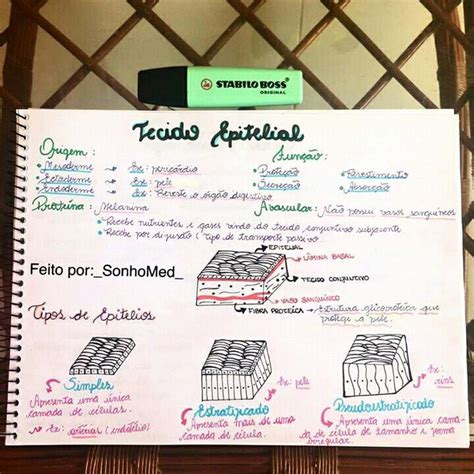 STABILO BOSS
ORIGINAL
Tecido Epitelial
Origem:
• Mesoderme → Ex: pericárdio
• Ectoderme → Ex: pele
• Endoderme → Ex: Reveste o órgão digestivo
Função:
• Proteção
• Secreção
• Revestimento
• Absorção
Proteína: Melanina
Avascular: Não possui vasos sanguíneos
• Recebe nutrientes e gases vindo do tecido conjuntivo subjacente
• Recebe por difusão (tipo de transporte passivo
Feito por:_SonhoMed_
EPITELIAL
LÂMINA BASAL
TECIDO CONJUNTIVO
VASO SANGUÍNEO
FIBRA PROTEICA
Estrutura glicoproteica que
protege a pele.
Tipos de Epitélios
Simples
Apresenta uma única
camada de células.
Ex: artérias (endotélio)
Ex: pele
Estratificado
Apresenta mais de uma
camada de célula.
Ex:
rins
Pseudoestratificado
Apresenta uma única cama-
da de célula de tamanho e forma
irregular.